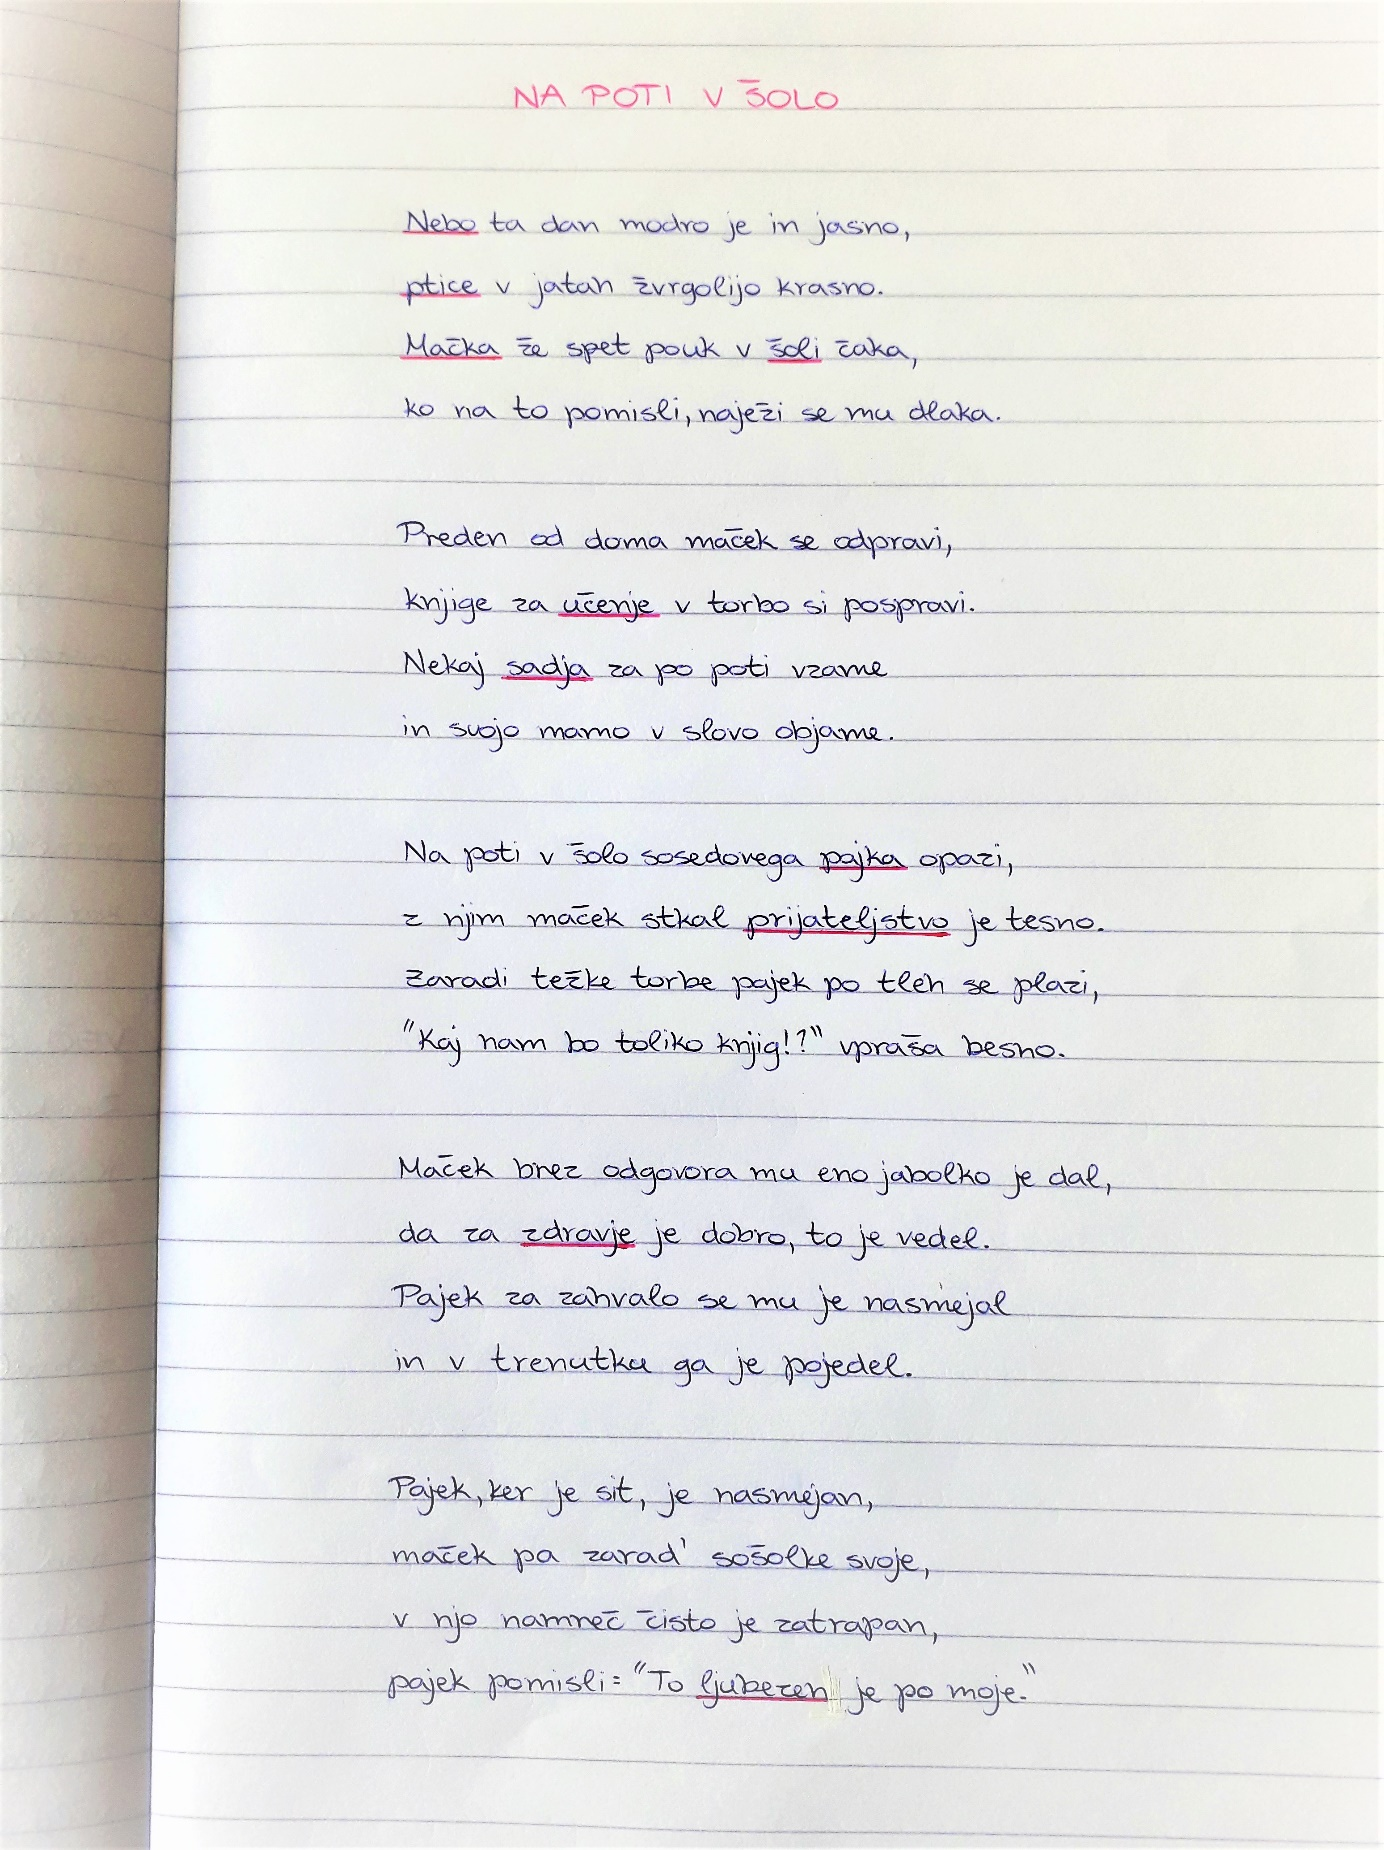 NA POTI V ŠOLO
Nebo ta dan modro je in jasno,
ptice v jatah žvrgolijo krasno.
Mačka že spet pouk v šoli čaka,
ko na to pomisli, naježi se mu dlaka.
Preden od doma maček se odpravi,
knjige za učenje v torbo si pospravi.
Nekaj sadja za po poti vzame
in svojo mamo v slovo objame.
Na poti v šolo sosedovega pajka opazi,
z njim maček stkal prijateljstvo je tesno.
Zaradi težke torbe pajek po tleh se plazi,
"Kaj nam bo toliko knjig!?" vpraša besno.
Maček brez odgovora mu eno jabolko je dal,
da za zdravje je dobro, to je vedel.
Pajek za zahvalo se mu je nasmejal
in v trenutku ga je pojedel.
Pajek, ker je sit, je nasmejan,
maček pa zarad' sošolke svoje,
v njo namreč čisto je zatrapan,
pajek pomisli: "To ljubezen je po moje."